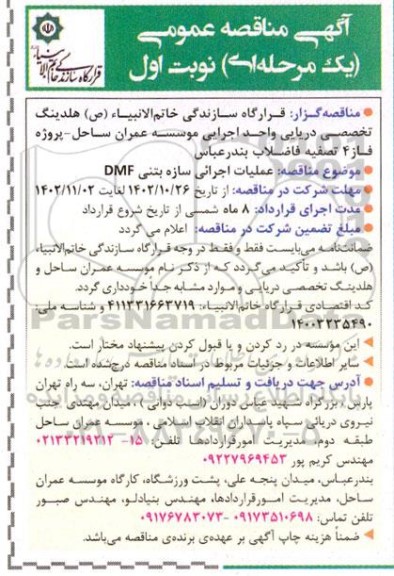 آگهی مناقصه عمومی
(یک مرحله‌ای) نوبت اول
قرارگاه سازندگی خاتم‌الانبیاء
مناقصه‌گزار: قرارگاه سازندگی خاتم‌الانبیاء (ص) هلدینگ
تخصصی دریایی واحد اجرایی موسسه عمران ساحل-پروژه
فاز۴ تصفیه فاضلاب بندرعباس
موضوع مناقصه: عملیات اجرائی سازه بتنی DMF
مهلت شرکت در مناقصه: از تاریخ ۱۴۰۲/۱۰/۲۶ لغایت ۱۴۰۲/۱۱/۰۲
مدت اجرای قرارداد: ۸ ماه شمسی از تاریخ شروع قرارداد
مبلغ تضمین شرکت در مناقصه: اعلام می گردد
ضمانتنامه می‌بایست فقط و فقط در وجه قرارگاه سازندگی خاتم‌الانبیاء
(ص) باشد و تأکید می‌گردد که از ذکر نام موسسه عمران ساحل و
هلدینگ تخصصی دریایی و موارد مشابه جداً خودداری گردد.
کد اقتصادی قرارگاه خاتم‌الانبیاء: ۴۱۱۳۳۱۶۶۳۷۱۹ و شناسه ملی:
۱۴۰۰۳۲۳۵۴۹۰
این مؤسسه در رد کردن و یا قبول کردن پیشنهاد مختار است.
سایر اطلاعات و جزئیات مربوط در اسناد مناقصه درج‌شده است.
آدرس جهت دریافت و تسلیم اسناد مناقصه: تهران، سه راه تهران
پارس، بزرگراه شهید عباس دوران (اسب دوانی)، میدان مهندی، جنب
نیروی دریائی سپاه پاسداران انقلاب اسلامی، موسسه عمران ساحل
طبقه دوم، مدیریت امورقراردادها تلفن: ۱۵-۰۲۱۳۳۲۱۹۲۱۲
مهندس کریم پور ۰۹۲۲۷۹۶۹۴۵۳
بندرعباس، میدان پنجه علی، پشت ورزشگاه، کارگاه موسسه عمران
ساحل، مدیریت امورقراردادها، مهندس بنیادلو، مهندس صبور
تلفن تماس: ۰۹۱۷۳۵۱۰۶۹۸ -۰۹۱۷۶۷۸۳۰۷۳
ضمناً هزینه چاپ آگهی بر عهده‌ی برنده‌ی مناقصه می‌باشد.
ParsNamadData